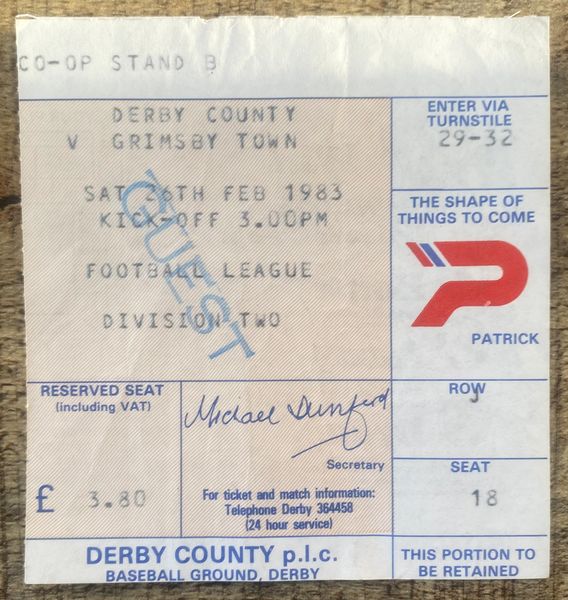 CO-OP STAND B
DERBY COUNTY
V GRIMSBY TOWN
SAT 26TH FEB 1983
KICK-OFF 3.00PM
FOOTBALL LEAGUE
DIVISION TWO
GUEST
ENTER VIA
TURNSTILE
29-32
THE SHAPE OF
THINGS TO COME
PATRICK
RESERVED SEAT
(including VAT)
£ 3.80
Michael Dunford
Secretary
For ticket and match information:
Telephone Derby 364458
(24 hour service)
ROW
J
SEAT
18
DERBY COUNTY p.l.c.
BASEBALL GROUND, DERBY
THIS PORTION TO
BE RETAINED